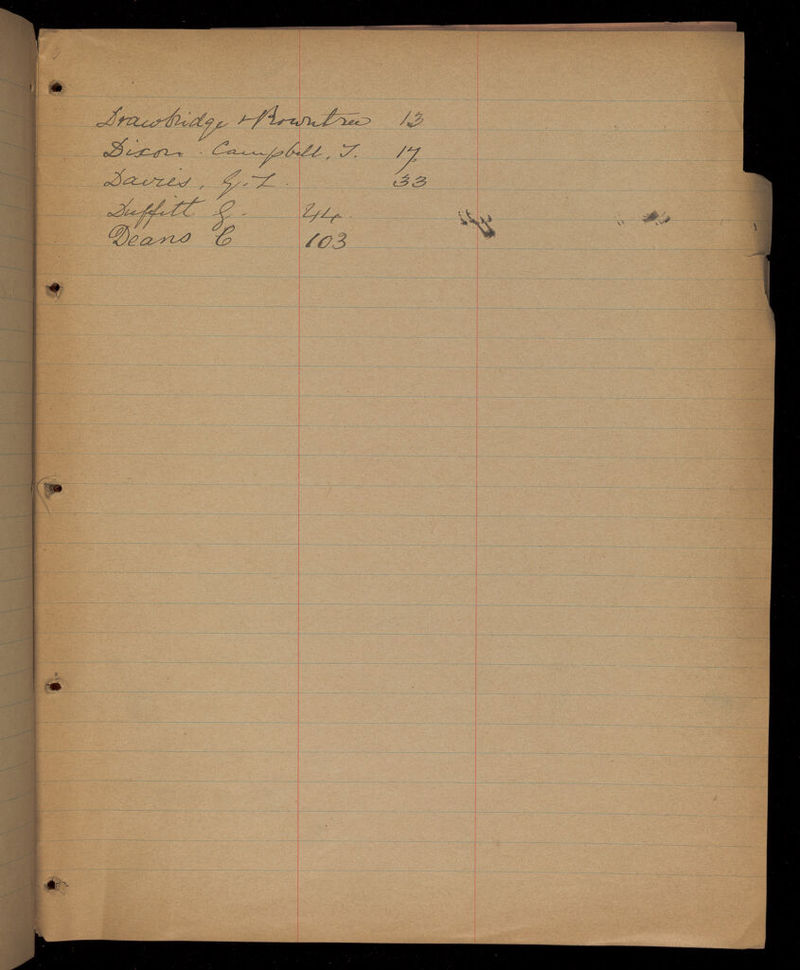 Drawbridge & Rowntree 13
Dixon - Campbell, J. 17
Davies, G. L. 33
Duffitt G. 44
Deans C 103